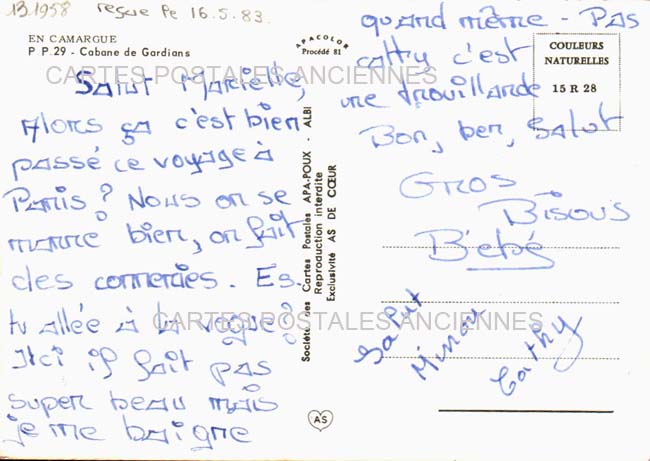 13.1958 reçue le 16.5.83.
EN CAMARGUE
P P.29 - Cabane de Gardians
CARTES POSTALES ANCIENNES
Salut Marielle,
Alors ça c'est bien
passé ce voyage à
Paris? Nous on se
marre bien, on fait
des conneries. Es
tu allée à la vogue?
Ici il fait pas
super beau mais
je me baigne
quand même - Pas
cathy c'est
une trouillarde
Bon, ben, Salut
Gros
Bisous
Bébé
Salut
Minou
Cathy
CARTES POSTALES ANCIENNES
APACOLOR
Procédé 81
COULEURS
NATURELLES
15 R 28
Société des Cartes Postales APA-POUX - ALBI
Reproduction interdite
Exclusivité AS DE CŒUR
AS